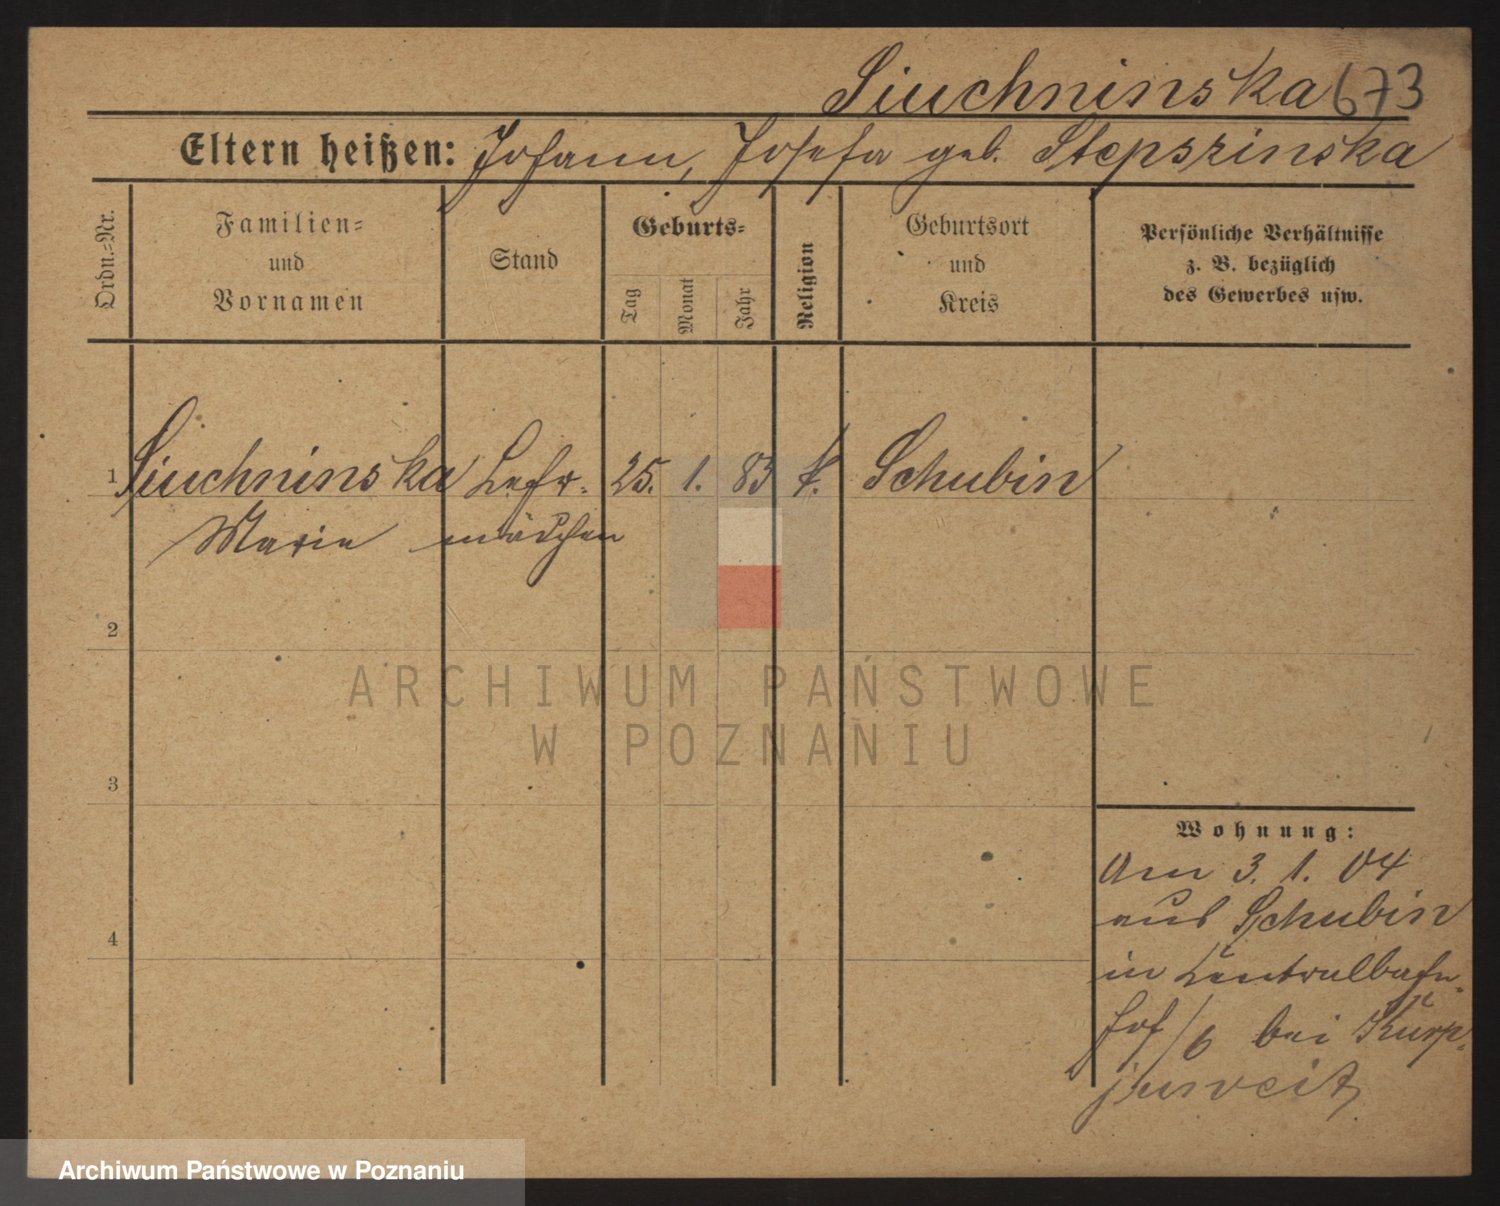 Siuchninska 673
Eltern heißen: Johann, Josefa geb. Stepszinska
Ordn.-Nr.
Familien-
und
Vornamen
Stand
Geburts-
Tag
Monat
Jahr
Religion
Geburtsort
und
Kreis
Persönliche Verhältnisse
z. B. bezüglich
des Gewerbes usw.
1 Siuchninska Lehr- 25. 1. 83 k. Schubin
Marie mädchen
2
3
4
Wohnung:
Am 3. 1. 04
aus Schubin
in Centralbahn-
hof/6 bei
ARCHIWUM PAŃSTWOWE
W POZNANIU
Archiwum Państwowe w Poznaniu